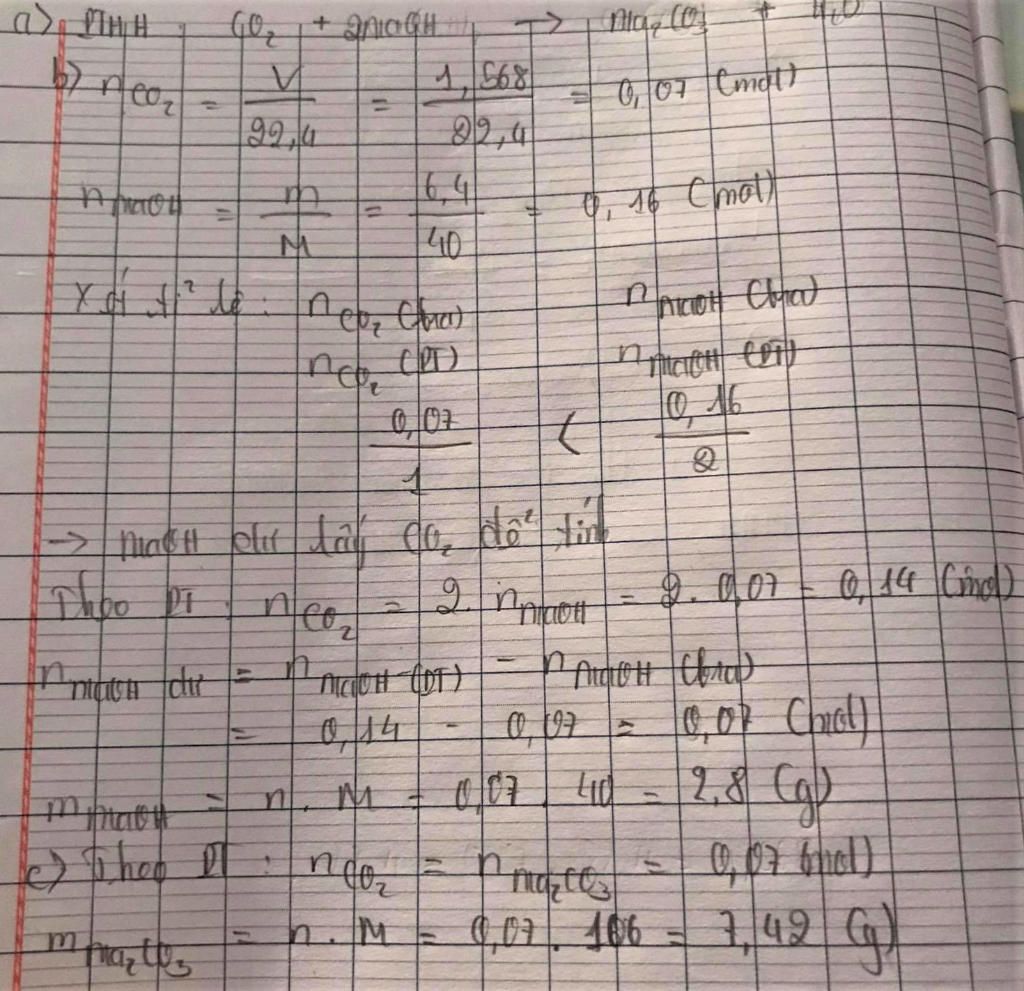 a) PTHH : CO₂ + 2NaOH → Na₂CO₃ + H₂O
b) nCO₂ = V/22,4 = 1,568/22,4 = 0,07 (mol)
nNaOH = m/M = 6,4/40 = 0,16 (mol)
Xét tỉ lệ : nCO₂ (bra) nNaOH (bra)
nCO₂ (PT) nNaOH (PT)
0,07/1 < 0,16/2
→ NaOH dư lấy CO₂ để tính
Theo PT : nCO₂ = 2. nNaOH = 2. 0,07 = 0,14 (mol)
nNaOH dư = nNaOH (PT) - nNaOH (bra)
= 0,14 - 0,07 = 0,07 (mol)
mNaOH = n. M = 0,07 . 40 = 2,8 (g)
c) Theo PT : nCO₂ = nNa₂CO₃ = 0,07 (mol)
mNa₂CO₃ = n. M = 0,07 . 106 = 7,42 (g)